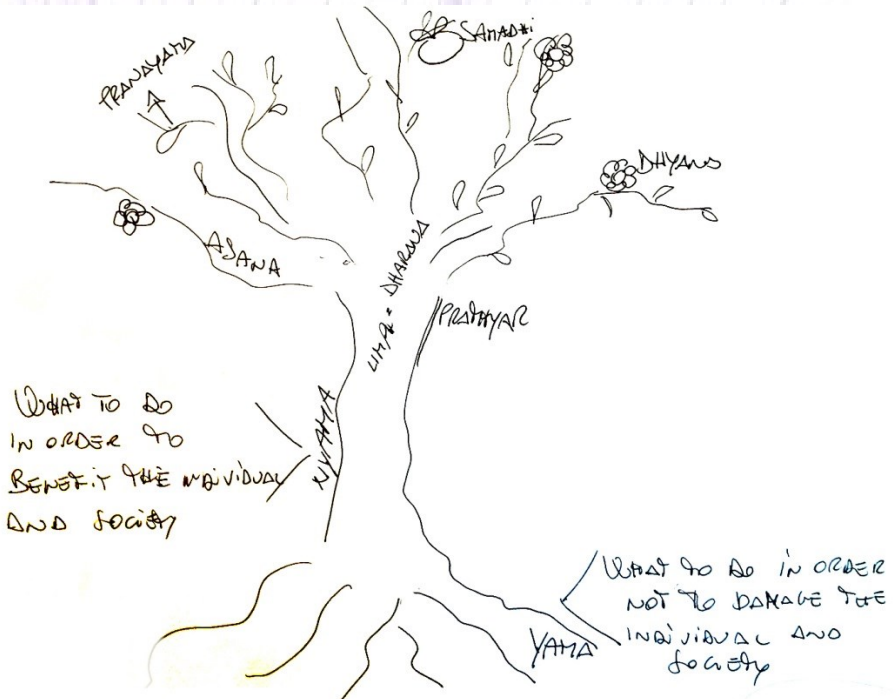 SAMADHi
PRANAYAMA
DHYANA
ASANA
DHARANA
PRATHYAR
NIYAMA
WHAT TO DO
IN ORDER TO
BENEFiT THE iNDiViDUAL
AND SOCiETY
WHAT TO DO iN ORDER
NOT TO DAMAGE THE
iNDiViDUAL AND
SOCiETY
YAMA